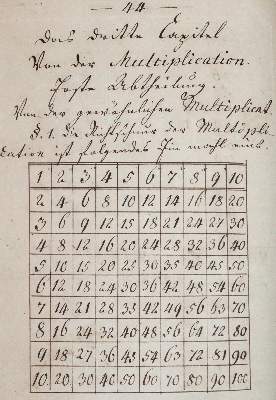 — 44 —
Das dritte Capitel
Von der Multiplication.
Erste Abtheilung.
Von der gewöhnlichen Multiplicat.
§. 1. die Richtschnur der Multipli-
cation ist folgendes Ein mahl eins
1 2 3 4 5 6 7 8 9 10
2 4 6 8 10 12 14 16 18 20
3 6 9 12 15 18 21 24 27 30
4 8 12 16 20 24 28 32 36 40
5 10 15 20 25 30 35 40 45 50
6 12 18 24 30 36 42 48 54 60
7 14 21 28 35 42 49 56 63 70
8 16 24 32 40 48 56 64 72 80
9 18 27 36 45 54 63 72 81 90
10 20 30 40 50 60 70 80 90 100